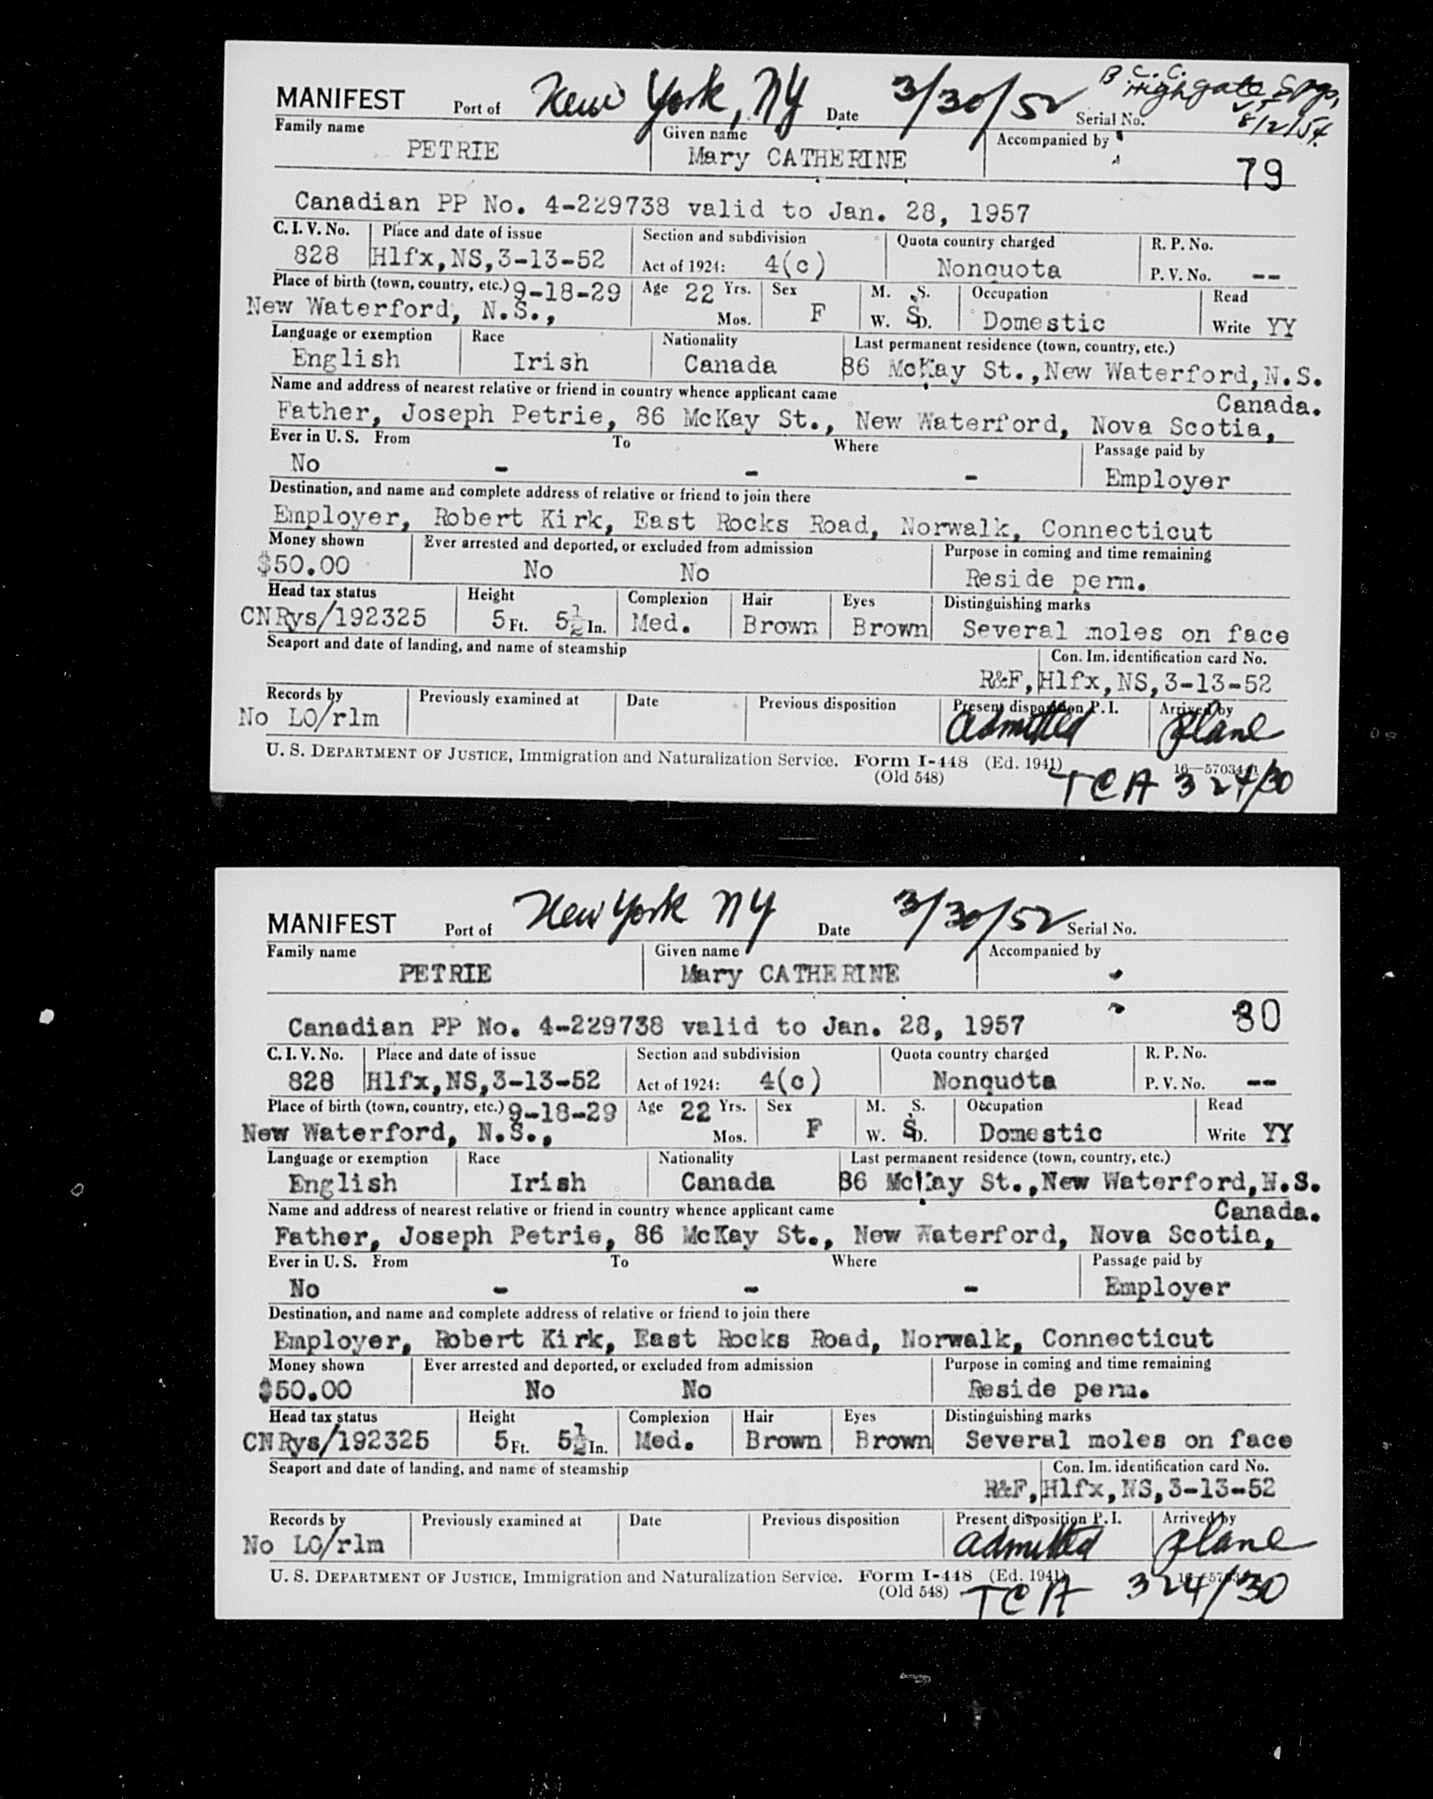 MANIFEST Port of New York, NY Date 3/30/52 Serial No.
B.C.C. Highgate Spgs, VT 8/2/54.
Family name Given name Accompanied by
PETRIE Mary CATHERINE 79
Canadian PP No. 4-229738 valid to Jan. 28, 1957
C. I. V. No. Place and date of issue Section and subdivision Quota country charged R. P. No.
828 Hlfx,NS,3-13-52 Act of 1924: 4(c) Nonquota P. V. No. --
Place of birth (town, country, etc.) 9-18-29 Age 22 Yrs. Sex M. S. Occupation Read
New Waterford, N.S., Mos. F W. S D. Domestic Write YY
Language or exemption Race Nationality Last permanent residence (town, country, etc.)
English Irish Canada 86 McKay St.,New Waterford,N.S.
Name and address of nearest relative or friend in country whence applicant came Canada.
Father, Joseph Petrie, 86 McKay St., New Waterford, Nova Scotia,
Ever in U. S. From To Where Passage paid by
No - - - Employer
Destination, and name and complete address of relative or friend to join there
Employer, Robert Kirk, East Rocks Road, Norwalk, Connecticut
Money shown Ever arrested and deported, or excluded from admission Purpose in coming and time remaining
$50.00 No No Reside perm.
Head tax status Height Complexion Hair Eyes Distinguishing marks
CNRys/192325 5 Ft. 5½ In. Med. Brown Brown Several moles on face
Seaport and date of landing, and name of steamship Con. Im. identification card No.
R&F,Hlfx,NS,3-13-52
Records by Previously examined at Date Previous disposition Present disposition P. I. Arrived by
No LO/rlm admitted plane
U. S. DEPARTMENT OF JUSTICE, Immigration and Naturalization Service. Form I-448 (Ed. 1941)
(Old 548) TCA 324/30
MANIFEST Port of New York NY Date 3/30/52 Serial No.
Family name Given name Accompanied by
PETRIE Mary CATHERINE
Canadian PP No. 4-229738 valid to Jan. 28, 1957 80
C. I. V. No. Place and date of issue Section and subdivision Quota country charged R. P. No.
828 Hlfx,NS,3-13-52 Act of 1924: 4(c) Nonquota P. V. No. --
Place of birth (town, country, etc.) 9-18-29 Age 22 Yrs. Sex M. S. Occupation Read
New Waterford, N.S., Mos. F W. S D. Domestic Write YY
Language or exemption Race Nationality Last permanent residence (town, country, etc.)
English Irish Canada 86 McKay St.,New Waterford,N.S.
Name and address of nearest relative or friend in country whence applicant came Canada.
Father, Joseph Petrie, 86 McKay St., New Waterford, Nova Scotia,
Ever in U. S. From To Where Passage paid by
No - - - Employer
Destination, and name and complete address of relative or friend to join there
Employer, Robert Kirk, East Rocks Road, Norwalk, Connecticut
Money shown Ever arrested and deported, or excluded from admission Purpose in coming and time remaining
$50.00 No No Reside perm.
Head tax status Height Complexion Hair Eyes Distinguishing marks
CNRys/192325 5 Ft. 5½ In. Med. Brown Brown Several moles on face
Seaport and date of landing, and name of steamship Con. Im. identification card No.
R&F,Hlfx,NS,3-13-52
Records by Previously examined at Date Previous disposition Present disposition P. I. Arrived by
No LO/rlm admitted plane
U. S. DEPARTMENT OF JUSTICE, Immigration and Naturalization Service. Form I-448 (Ed. 1941)
(Old 548) TCA 324/30